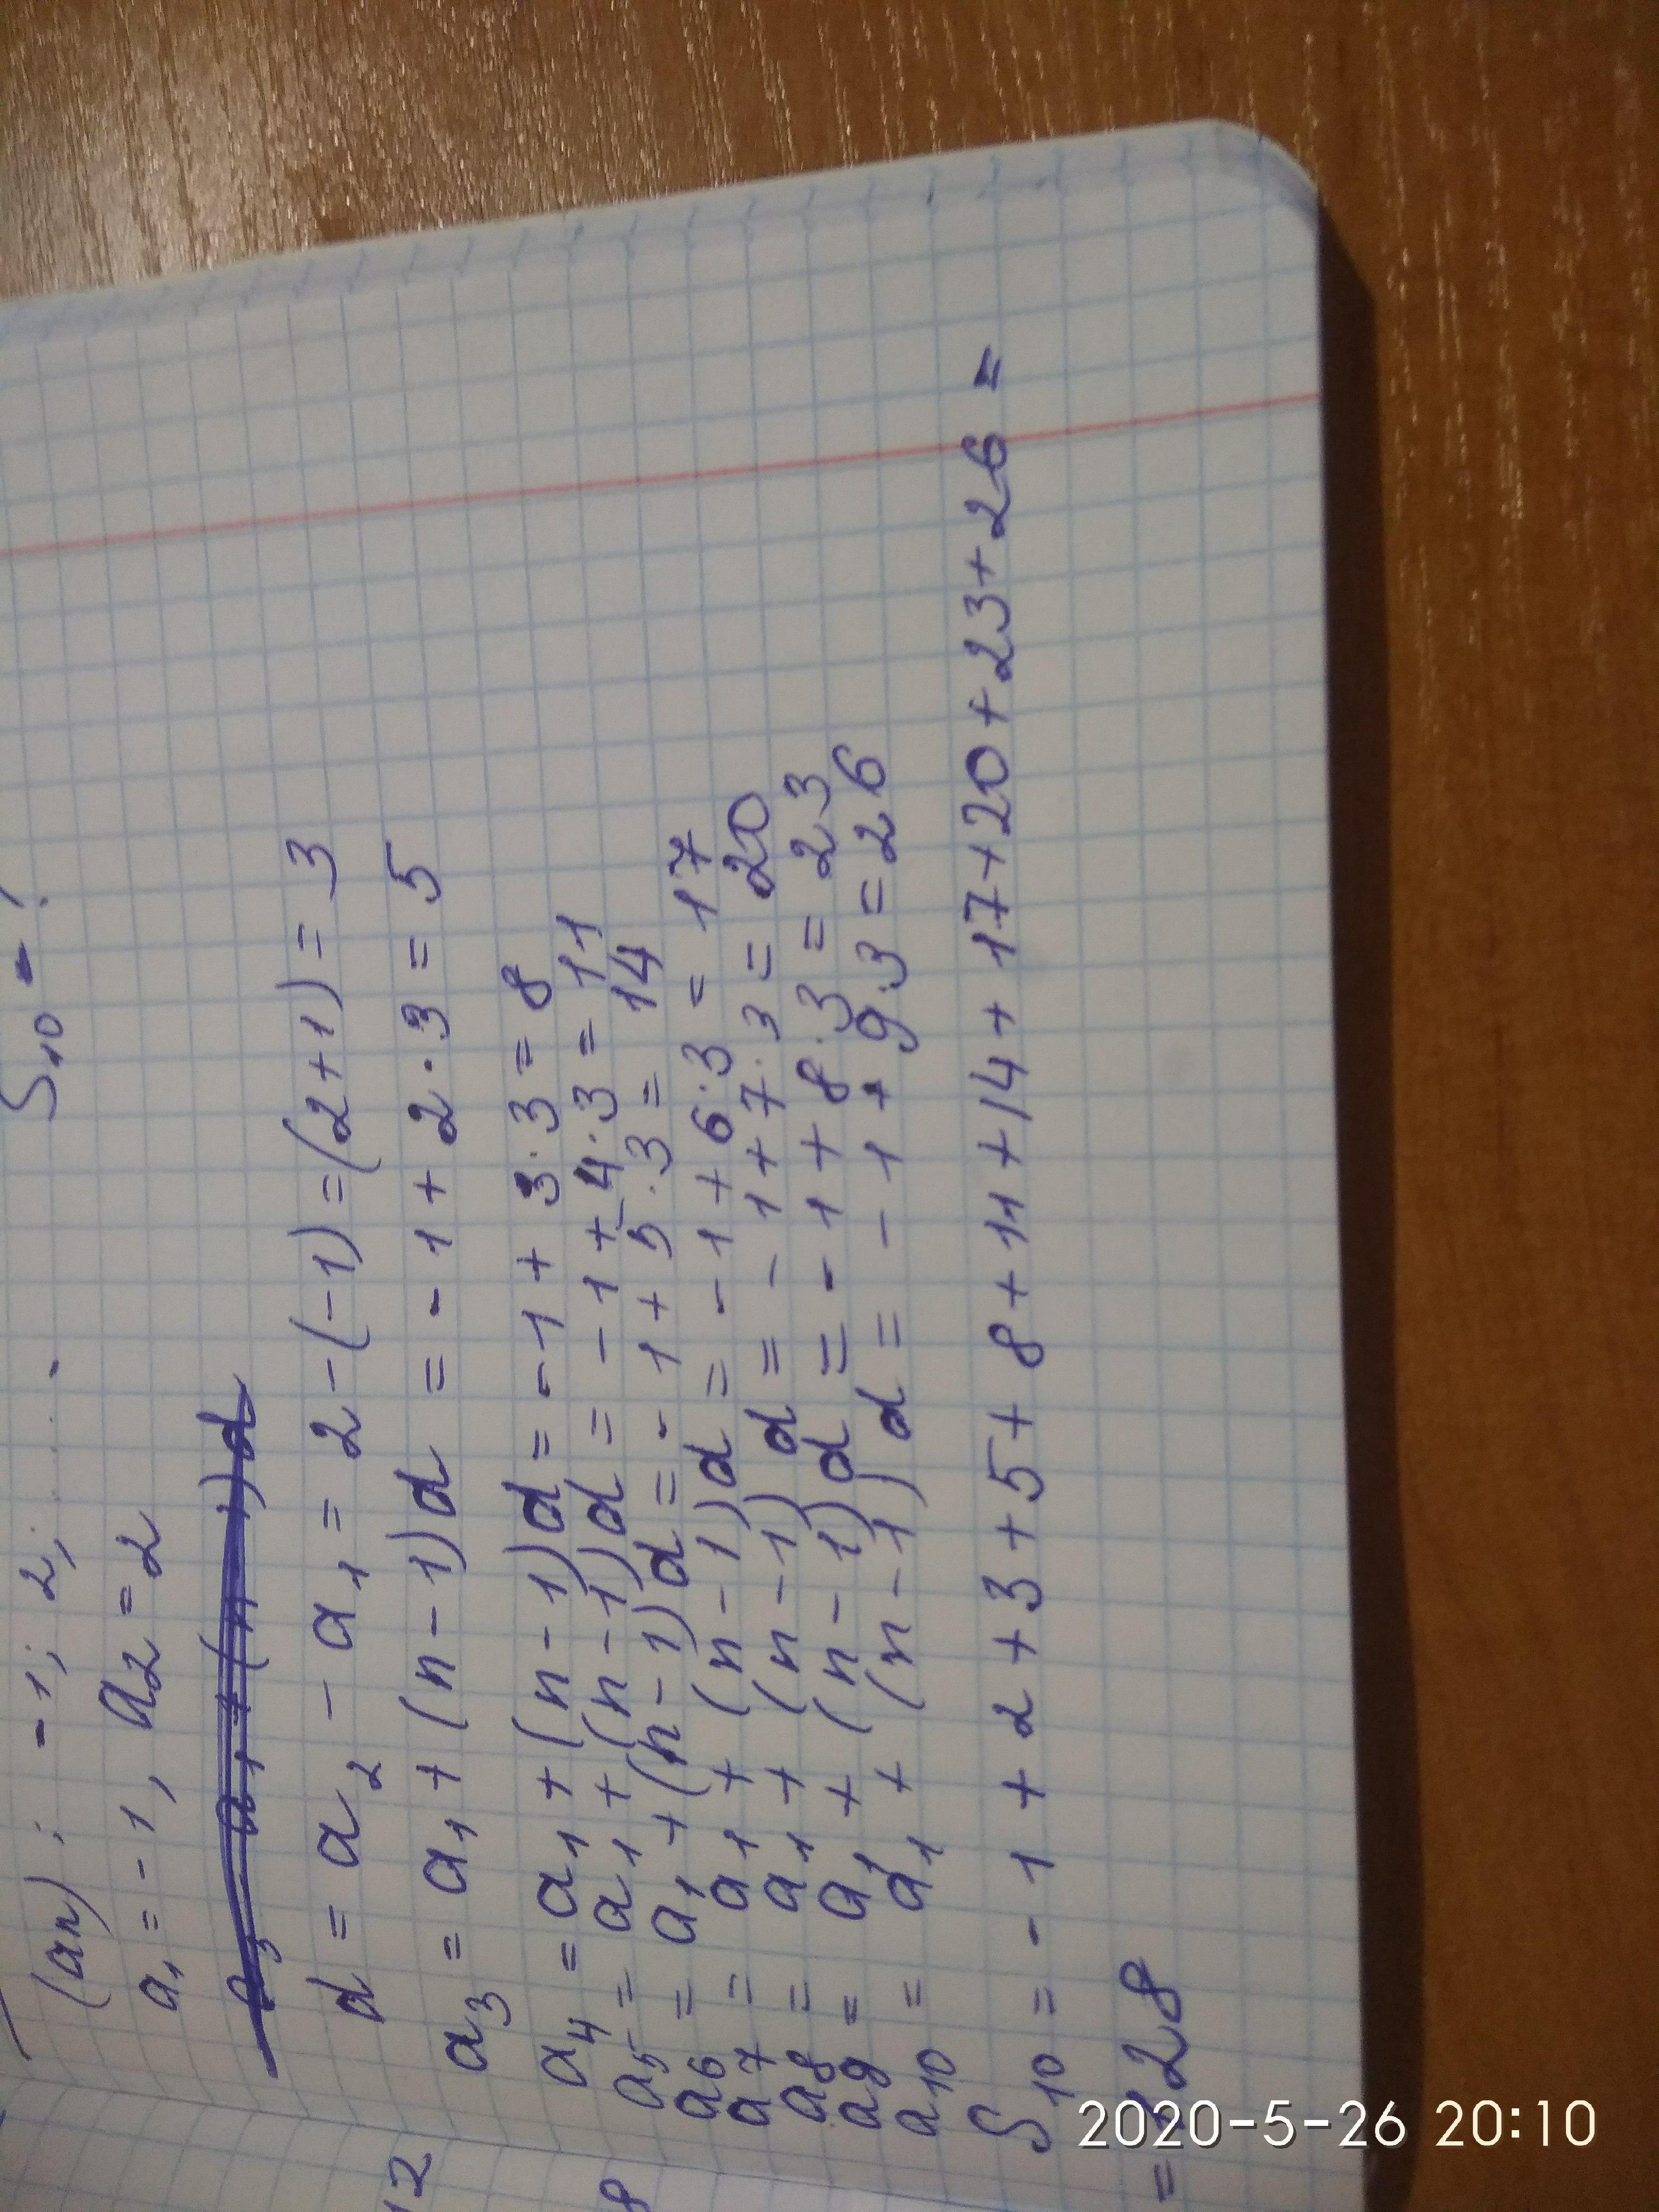 S₁₀ - ?
(an): -1; 2; ....
a₁ = -1, a₂ = 2
d = a₂ - a₁ = 2 - (-1) = (2+1) = 3
a₃ = a₁ + (n-1)d = -1 + 2·3 = 5
a₄ = a₁ + (n-1)d = -1 + 3·3 = 8
a₅ = a₁ + (n-1)d = -1 + 4·3 = 11
a₆ = a₁ + (n-1)d = -1 + 5·3 = 14
a₇ = a₁ + (n-1)d = -1 + 6·3 = 17
a₈ = a₁ + (n-1)d = -1 + 7·3 = 20
a₉ = a₁ + (n-1)d = -1 + 8·3 = 23
a₁₀ = a₁ + (n-1)d = -1 + 9·3 = 26
S₁₀ = -1 + 2 + 3 + 5 + 8 + 11 + 14 + 17 + 20 + 23 + 26 =
= 128
12
8
2020-5-26 20:10